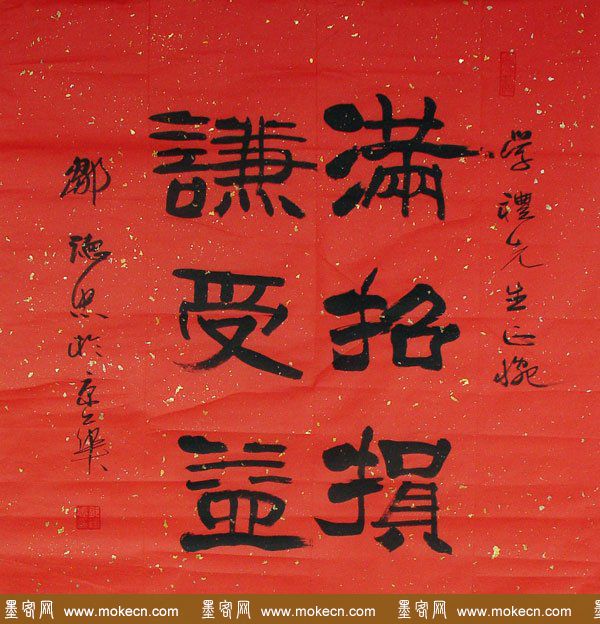 学礼先生正腕
满招损
謙受益
鄒德忠於京华
墨客网 www.mokecn.com 墨客网 www.mokecn.com 墨客网 www.mokecn.com